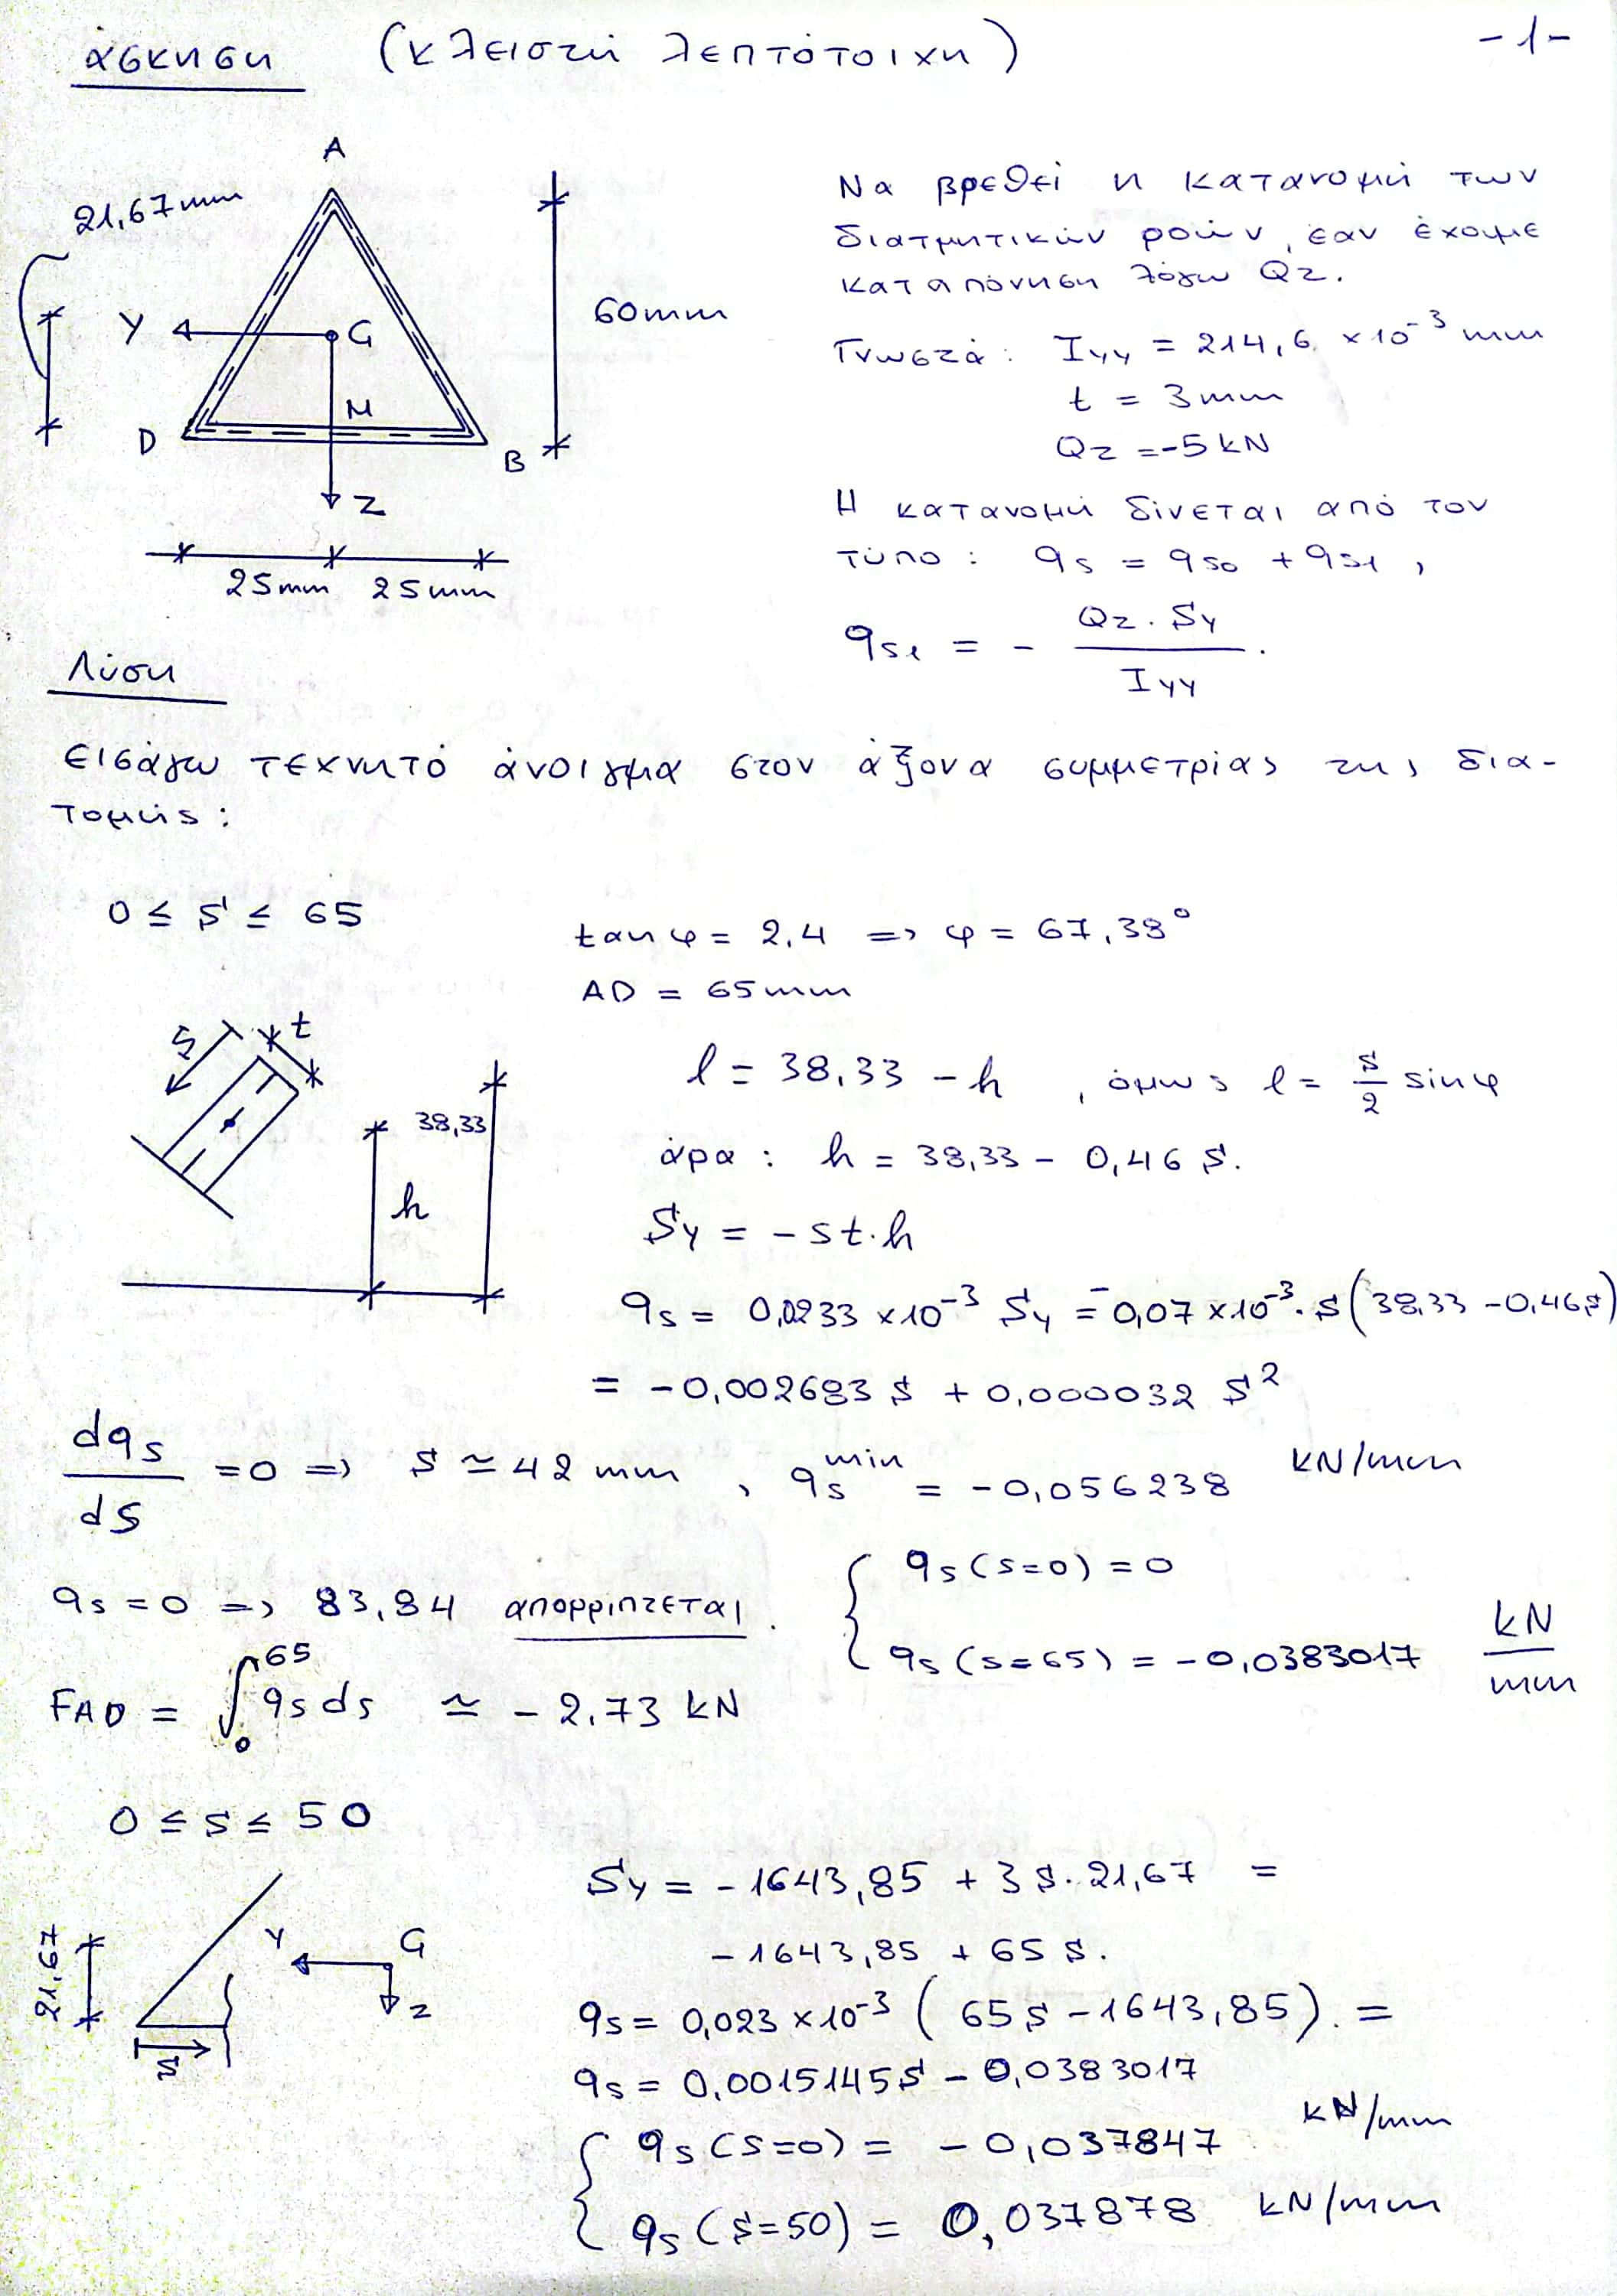 άσκηση (κλειστή λεπτότοιχη) -1-
A
21,67mm
Y
G
60mm
M
D
B
Z
25mm 25mm
Να βρεθεί η κατανομή των
διατμητικών ροών, εάν έχομε
καταπόνηση λόγω Qz.
Γνωστά: Iyy = 214,6 x 10^-3 mm
t = 3mm
Qz = -5 kN
Η κατανομή δίνεται από τον
τύπο: qs = qso + qs1,
qs1 = - Qz·Sy / Iyy.
Λύση
Εισάγω τεχνητό άνοιγμα στον άξονα συμμετρίας της δια-
τομής:
0 ≤ s ≤ 65
tanφ = 2,4 => φ = 67,38°
AD = 65mm
s
t
38,33
h
l = 38,33 - h, όμως l = s/2 sinφ
άρα: h = 38,33 - 0,46 s.
Sy = - st·h
qs = 0,0233 x10^-3 Sy = -0,07 x10^-3·s(38,33 - 0,46s)
= -0,002683 s + 0,000032 s^2
dqs/ds = 0 => s ≃ 42 mm, qs^min = -0,056238 kN/mm
qs = 0 => 83,84 απορρίπτεται.
{ qs(s=0) = 0
qs(s=65) = -0,0383017 kN/mm
FAD = ∫_0^65 qs ds ≃ - 2,73 kN
0 ≤ s ≤ 50
21,67
Y
G
Z
s
Sy = - 1643,85 + 3s·21,67 =
- 1643,85 + 65 s.
qs = 0,023 x10^-3 ( 65s - 1643,85). =
qs = 0,0015145s - 0,0383017
{ qs(s=0) = - 0,037847 kN/mm
qs(s=50) = 0,037878 kN/mm